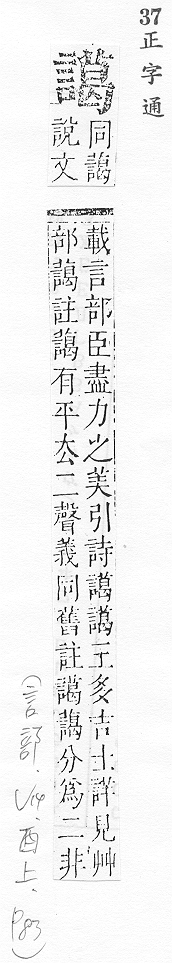 37正字通
譪
同藹
說文
載言部臣盡力之美引詩譪譪王多吉士詳見艸
部藹註藹有平厺二聲義同舊註譪藹分爲二非
（言部．V14．酉上．P83）